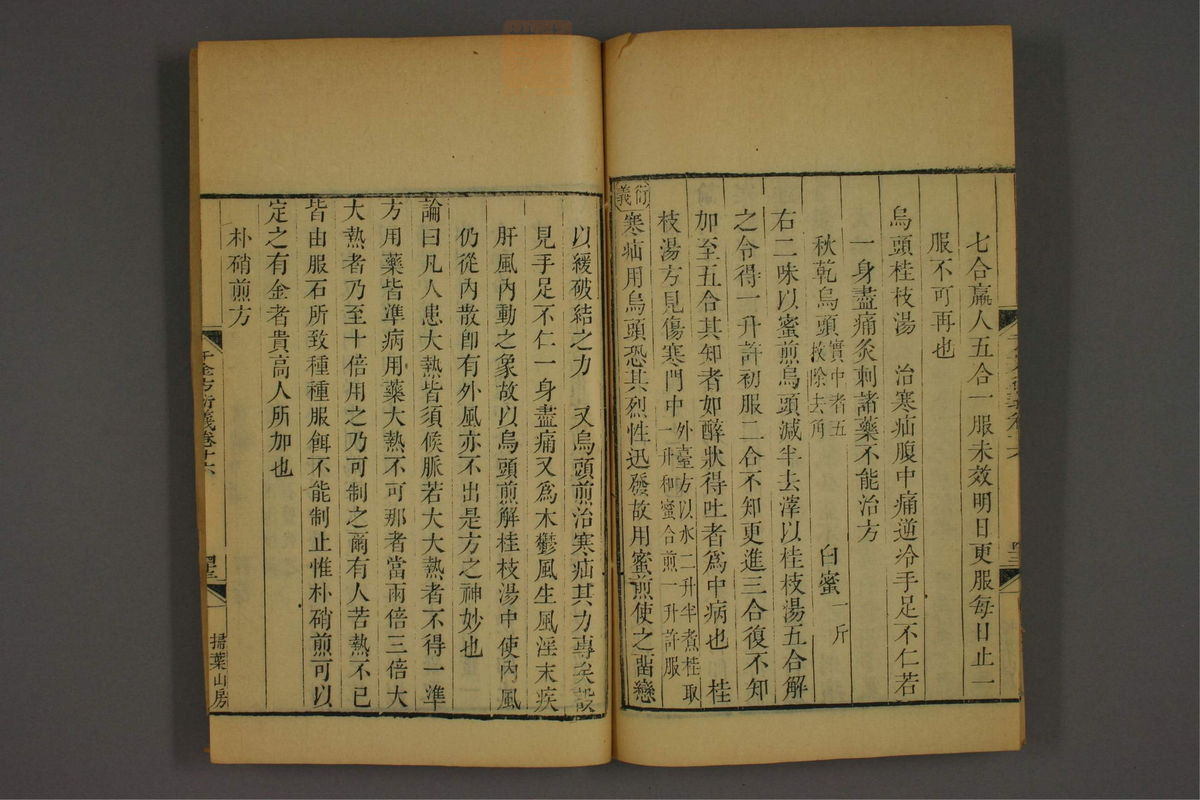 七合羸人五合一服未效明日更服每日止一
服不可再也
烏頭桂枝湯　治寒疝腹中痛逆冷手足不仁若
一身盡痛灸刺諸藥不能治方
秋乾烏頭實中者五
枚除去角　白蜜一斤
右二味以蜜煎烏頭減半去滓以桂枝湯五合解
之令得一升許初服二合不知更進三合復不知
加至五合其知者如醉狀得吐者爲中病也　桂
枝湯方見傷寒門中外臺方以水二升半煮桂取
一升和蜜合煎一升許服
衍義
寒疝用烏頭恐其烈性迅發故用蜜煎使之畱戀
以緩破結之力　又烏頭煎治寒疝其力專矣設
見手足不仁一身盡痛又爲木鬱風生風淫末疾
肝風內動之象故以烏頭煎解桂枝湯中使內風
仍從內散卽有外風亦不出是方之神妙也
論曰凡人患大熱皆須候脈若大大熱者不得一準
方用藥皆準病用藥大熱不可那者當兩倍三倍大
大熱者乃至十倍用之乃可制之爾有人苦熱不已
皆由服石所致種種服餌不能制止惟朴硝煎可以
定之有金者貴高人所加也
朴硝煎方
千金方衍義卷十六
掃葉山房